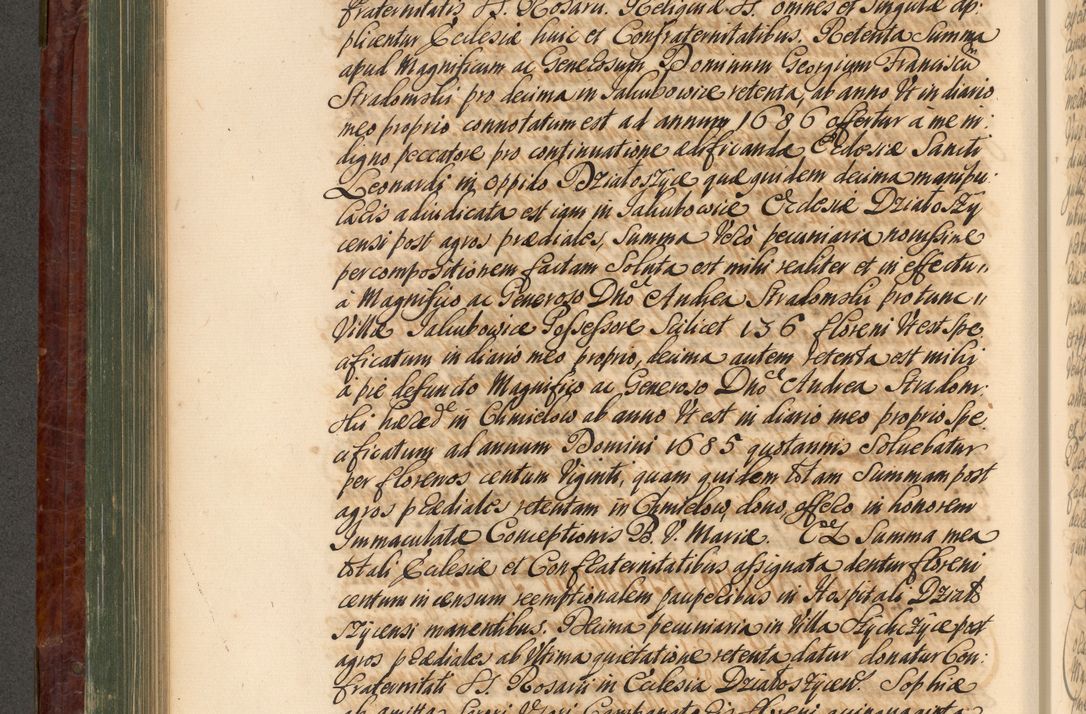 fraternitatis SS. Rosarii. Reliquiæ SS. omnes et singulæ ap:
plicentur Ecclesiæ huic et Confraternitatibus. Retenta Summa
apud Magnificum ac Generosum Dominum Georgium Franciscũ
Stradomski pro decima in Jakubowice retenta, ab anno Vt in diario
meo proprio connotatum est ad annum 1686 offertur à me in:
digno peccatore pro continuatione ædificandæ Ecclesiæ Sancti
Leonardi in oppido Działoszyce quæ quidem decima manipu:
laris adiudicata est iam in Jakubowice Ecclesiæ Działoszy
censi post agros prædiales, Summa Verò pecuniaria novissime
per compositionem factam Soluta est mihi realiter et in effectu
à Magnifico ac Generoso Dno Andrea Stradomski pro tunc
Villæ Jakubowice Possessore Scilicet 136 floreni Vt est spe
cificatum in diario meo proprio, decima autem retenta est mihi
à piè defuncto Magnifico ac Generoso Dno Andrea Stradom:
ski hæred in Chmielow ab anno Vt est in diario meo proprio spe
cificatum ad annum Domini 1685 quotannis Soluebatur
per florenos centum Viginti, quam quidem totam Summam post
agros prædiales retentam in Chmielow, dono, offero in honorem
Immaculatæ Conceptionis B. V. Mariæ. Ex Summa mea
totali Ecclesiæ et Confraternitatibus assignata dentur floreni
centum in censum reemptionalem pauperibus in Hospitali Działo
szycensi manentibus. Decima pecuniaria in Villa Szyszczyce post
agros prædiales ab Vltima quietatione retenta datur donatur Con:
fraternitati SS. Rosarii in Ecclesia Działoszycen. Sophiæ